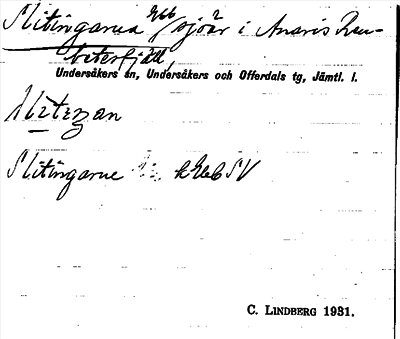 Slitingarna Ekb sjöar i Anaris Ren-
betesfjäll,
Undersåkers sn, Undersåkers och Offerdals tg, Jämtl. l.
Slitingarne k Ekb SV
C. LINDBERG 1931.